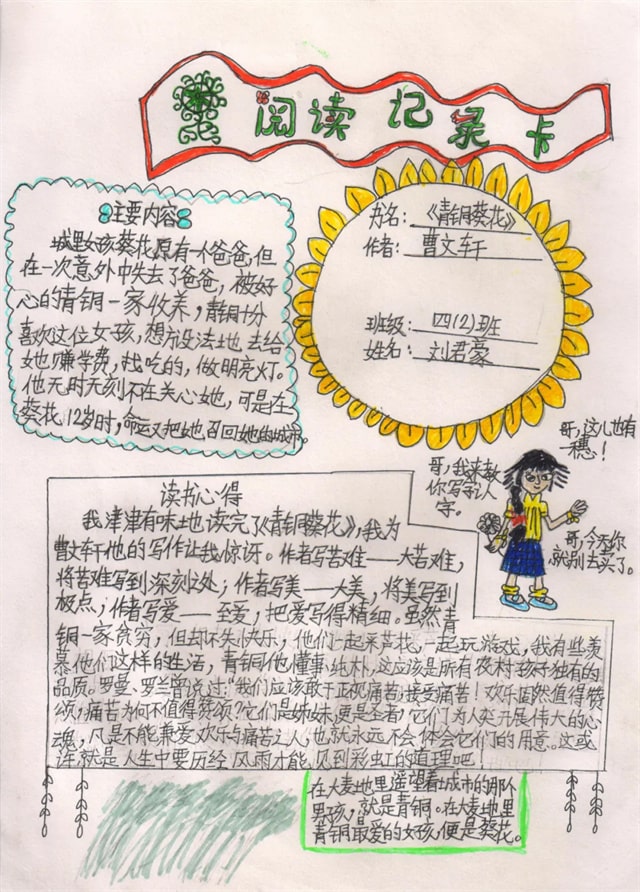 阅读记录卡
主要内容
城里女孩葵花原有一个爸爸,但
在一次意外中失去了爸爸,被好
心的青铜一家收养,青铜十分
喜欢这位女孩,想方设法地去给
她赚学费,找吃的,做明亮灯。
他无时无刻不在关心她,可是在
葵花12岁时,命运又把她召回她的城市。
书名:《青铜葵花》
作者:曹文轩
班级:四(2)班
姓名:刘君豪
哥,这儿也有
一穗!
哥,我来教
你写字认
字。
哥,今天你
就别去买了。
读书心得
我津津有味地读完了《青铜葵花》,我为
曹文轩他的写作让我惊讶。作者写苦难——大苦难,
将苦难写到深刻之处;作者写美——大美,将美写到
极点;作者写爱——至爱,把爱写得精细。虽然青
铜一家贫穷,但却不失快乐,他们一起采芦花,一起玩游戏,我有些羡
慕他们这样的生活,青铜他懂事、纯朴,这应该是所有农村孩子独有的
品质。罗曼、罗兰曾说过:“我们应该敢于正视痛苦,接受痛苦!欢乐固然值得赞
颂,痛苦为何不值得赞颂?它们是姊妹,更是圣者,它们为人类开展伟大的心
魂,凡是不能兼爱欢乐与痛苦之人,也就永远不会体会它们的用意。这或
许就是人生中要历经风雨才能见到彩虹的道理吧!
在大麦地里遥望着城市的那个
男孩,就是青铜。在大麦地里
青铜最爱的女孩,便是葵花。